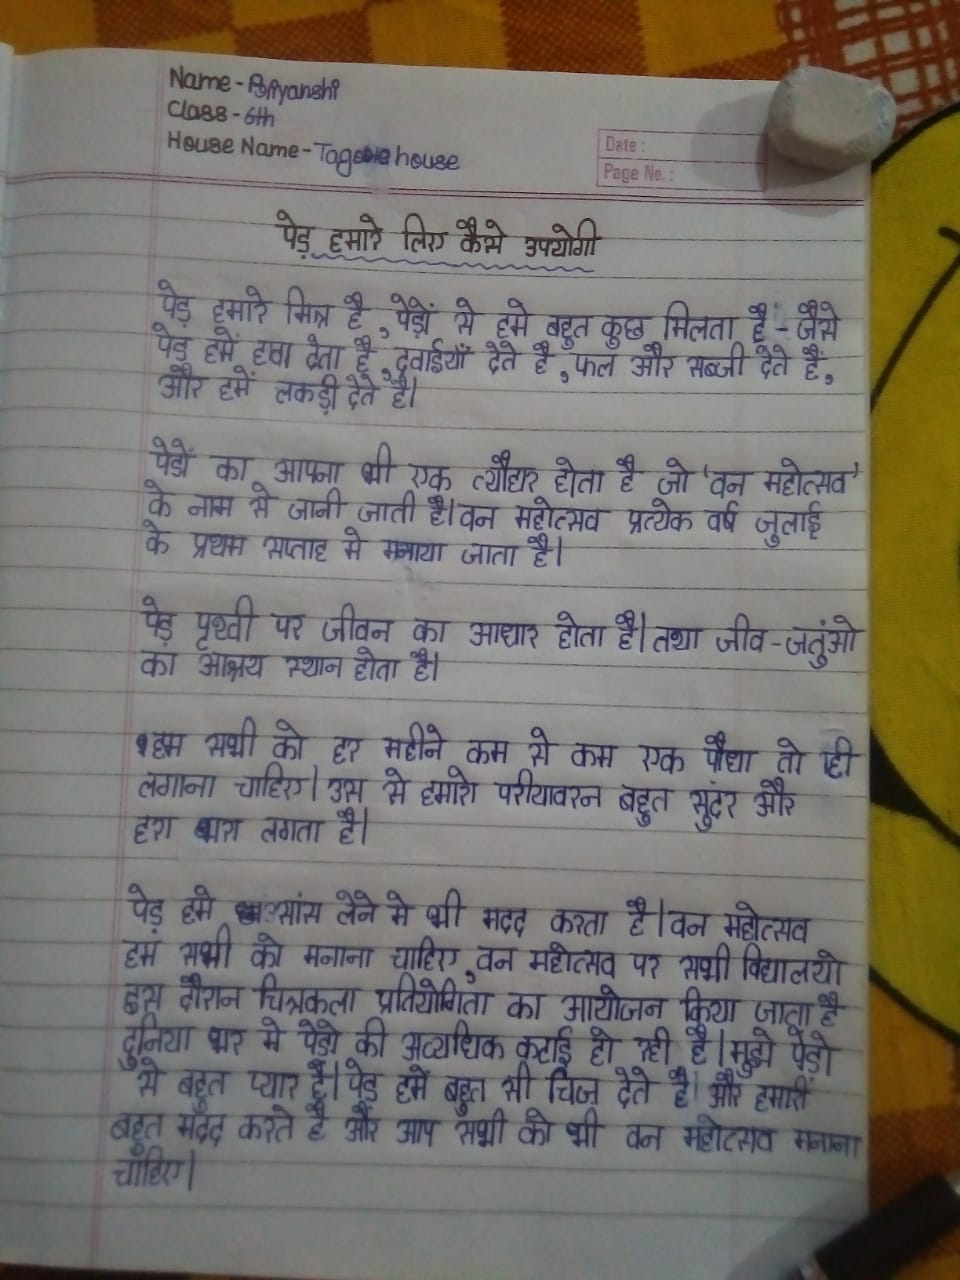 Name - Priyanshi
Class - 6th
House Name - Tagore house
Date :
Page No. :
पेड़ हमारे लिए कैसे उपयोगी
पेड़ हमारे मित्र है, पेड़ों से हमे बहुत कुछ मिलता हैं - जैसे
पेड़ हमें हवा देता है, दवाईयाँ देते है, फल और सब्जी देते हैं,
और हमें लकड़ी देते है।
पेडों का आपना भी एक त्यौहार होता है जो 'वन महोत्सव'
के नाम से जानी जाती है। वन महोत्सव प्रत्येक वर्ष जुलाई
के प्रथम सप्ताह मे मनाया जाता है।
पेड़ पृथ्वी पर जीवन का आधार होता है। तथा जीव - जतुंओ
का आश्रय स्थान होता है।
हम सभी को हर महीने कम से कम एक पौधा तो ही
लगाना चाहिए। उस से हमारो परीयावरन बहुत सुंदर और
हरा भरा लगता है।
पेड़ हमे सांस लेने मे भी मदद करता है। वन महोत्सव
हम सभी को मनाना चाहिए, वन महोत्सव पर सभी विद्यालयो
इस दौरान चित्रकला प्रतियोगिता का आयोजन किया जाता है
दुनिया भर मे पेडो की अत्यधिक कटाई हो रही है। मुझे पेड़ो
से बहुत प्यार हैं। पेड़ हमें बहुत सी चिज देते है। और हमारी
बहुत मदद करते है और आप सभी को भी वन महोत्सव मनाना
चाहिए।